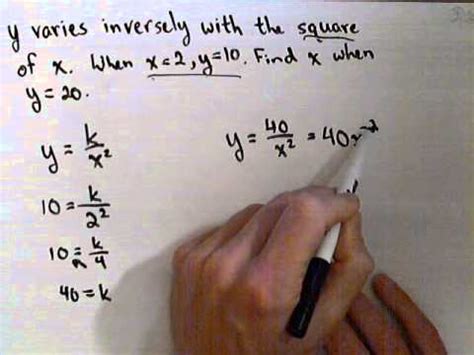 y varies inversely with the square
of x. When x=2, y=10. Find x when
y=20.
y = k/x²
y = 40/x² = 40x⁻²
10 = k/2²
10 = k/4
40 = k